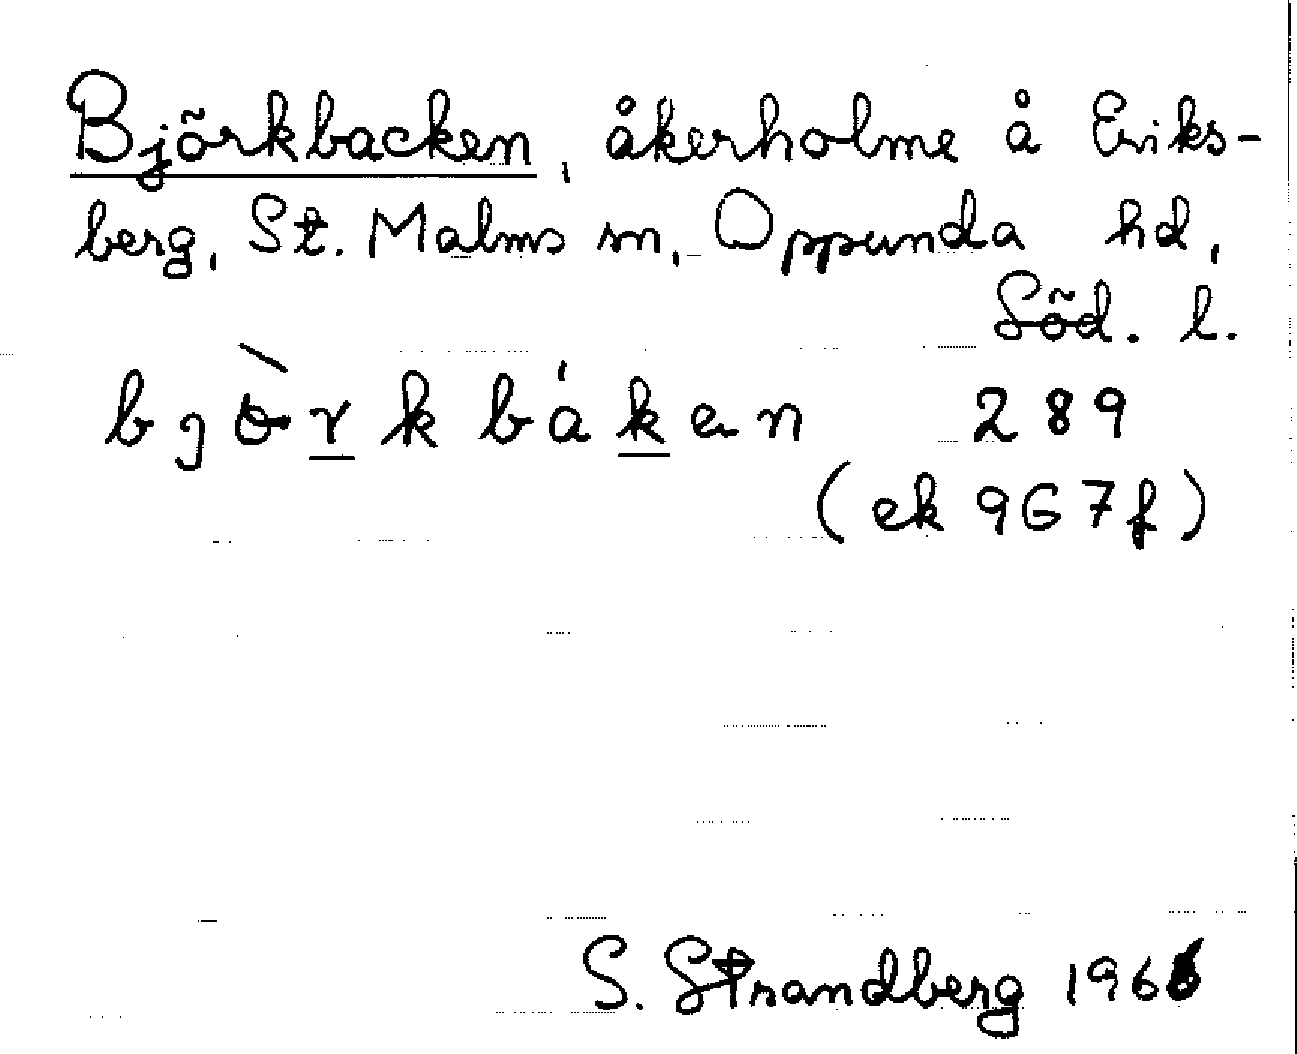 Björkbacken, åkerholme å Eriks-
berg, St. Malms sn, Oppunda hd,
Söd. l.
bjòrkbáken 289
(ek 967f)
S. Strandberg 1966